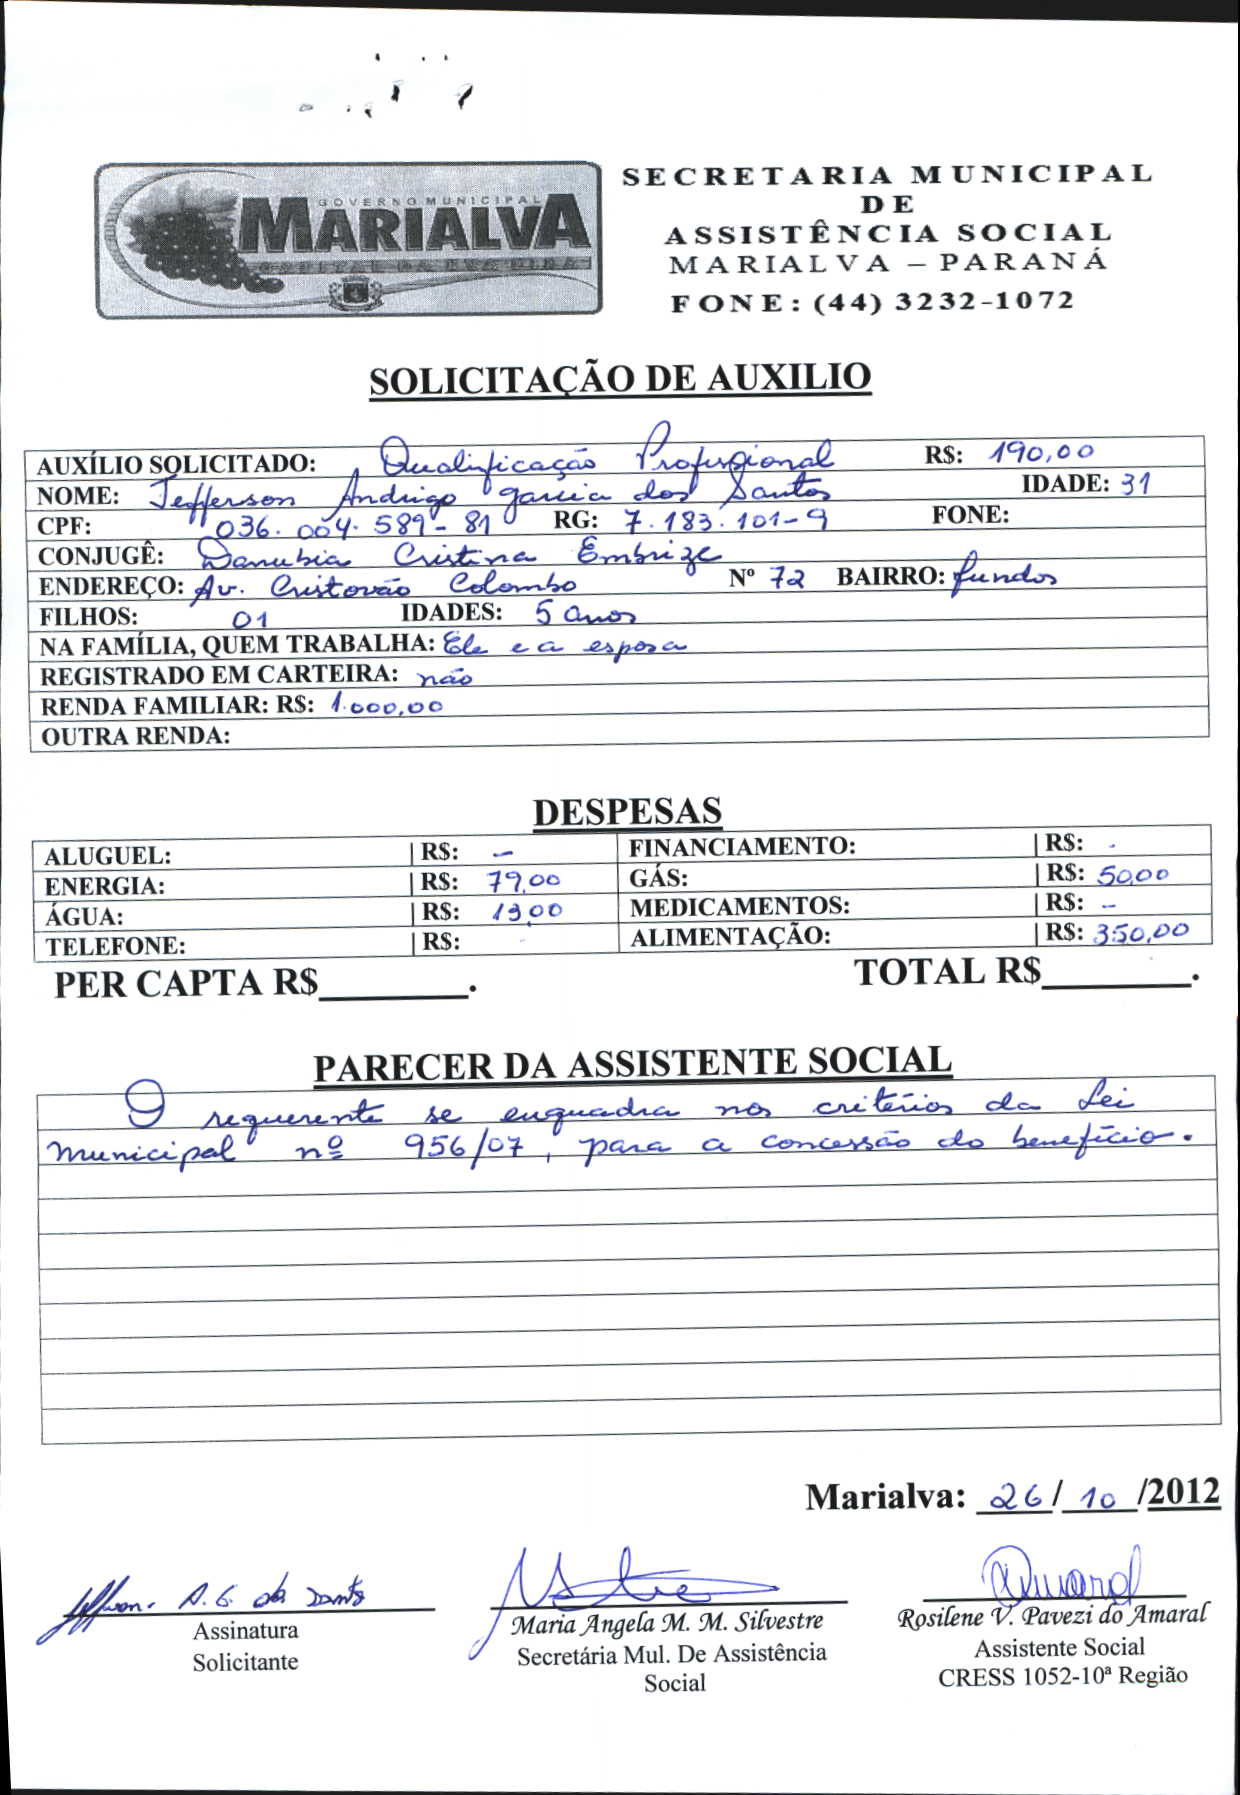 GOVERNO MUNICIPAL
MARIALVA
CAPITAL DA UVA FINA
SECRETARIA MUNICIPAL
DE
ASSISTÊNCIA SOCIAL
MARIALVA – PARANÁ
FONE: (44) 3232-1072
SOLICITAÇÃO DE AUXILIO
AUXÍLIO SOLICITADO: Qualificação Profissional R$: 190,00
NOME: Jefferson Andrigo Garcia dos Santos IDADE: 31
CPF: 036.004.589-81 RG: 7.183.101-9 FONE:
CONJUGÊ: Danubia Cristina Embrize
ENDEREÇO: Av. Cristovão Colombo Nº 72 BAIRRO: fundos
FILHOS: 01 IDADES: 5 anos
NA FAMÍLIA, QUEM TRABALHA: Ele e a esposa
REGISTRADO EM CARTEIRA: não
RENDA FAMILIAR: R$: 1.000,00
OUTRA RENDA:
DESPESAS
ALUGUEL: | R$: - FINANCIAMENTO: | R$: -
ENERGIA: | R$: 79,00 GÁS: | R$: 50,00
ÁGUA: | R$: 19,00 MEDICAMENTOS: | R$: -
TELEFONE: | R$: - ALIMENTAÇÃO: | R$: 350,00
PER CAPTA R$________. TOTAL R$________.
PARECER DA ASSISTENTE SOCIAL
O requerente se enquadra nos critérios da Lei
Municipal nº 956/07, para a concessão do benefício.
Marialva: 26/10/2012
Jefferson A. G. dos Santos
Assinatura
Solicitante
Maria Angela M. M. Silvestre
Secretária Mul. De Assistência
Social
Amaral
Rosilene V. Pavezi do Amaral
Assistente Social
CRESS 1052-10ª Região